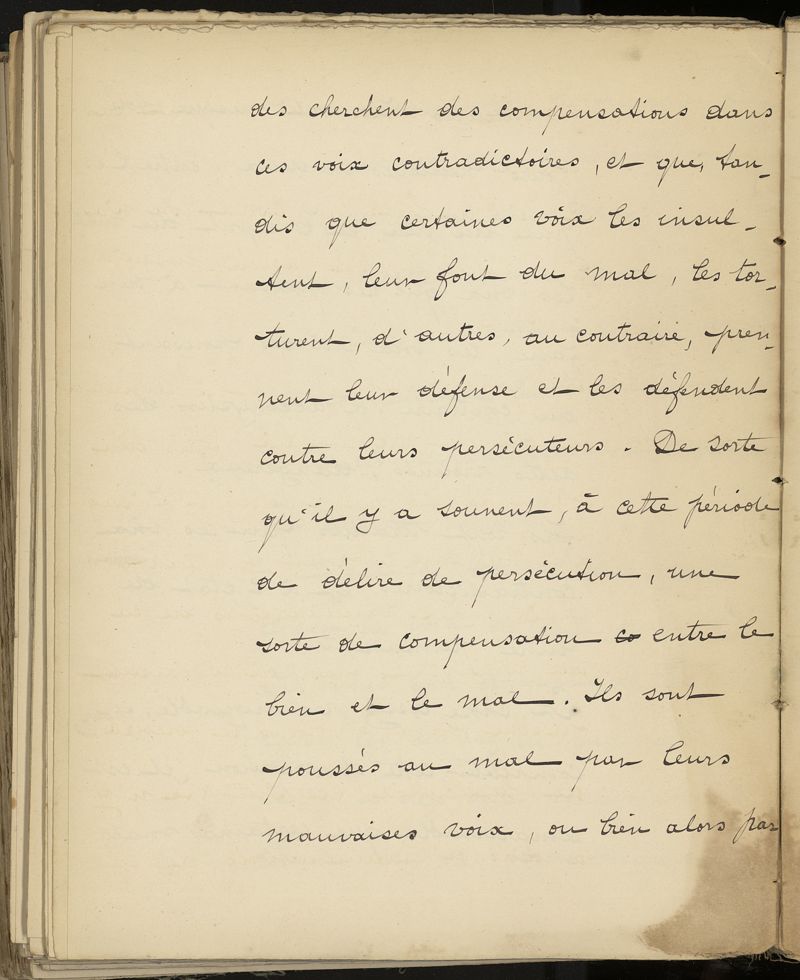 des cherchent des compensations dans
ces voix contradictoires, et que, tan-
dis que certaines voix les insul-
tent, leur font du mal, les tor-
turent, d'autres, au contraire, pren-
nent leur défense et les défendent
contre leurs persécuteurs. De sorte
qu'il y a souvent, à cette période
de délire de persécution, une
sorte de compensation co entre le
bien et le mal. Ils sont
poussés au mal par leurs
mauvaises voix, ou bien alors par